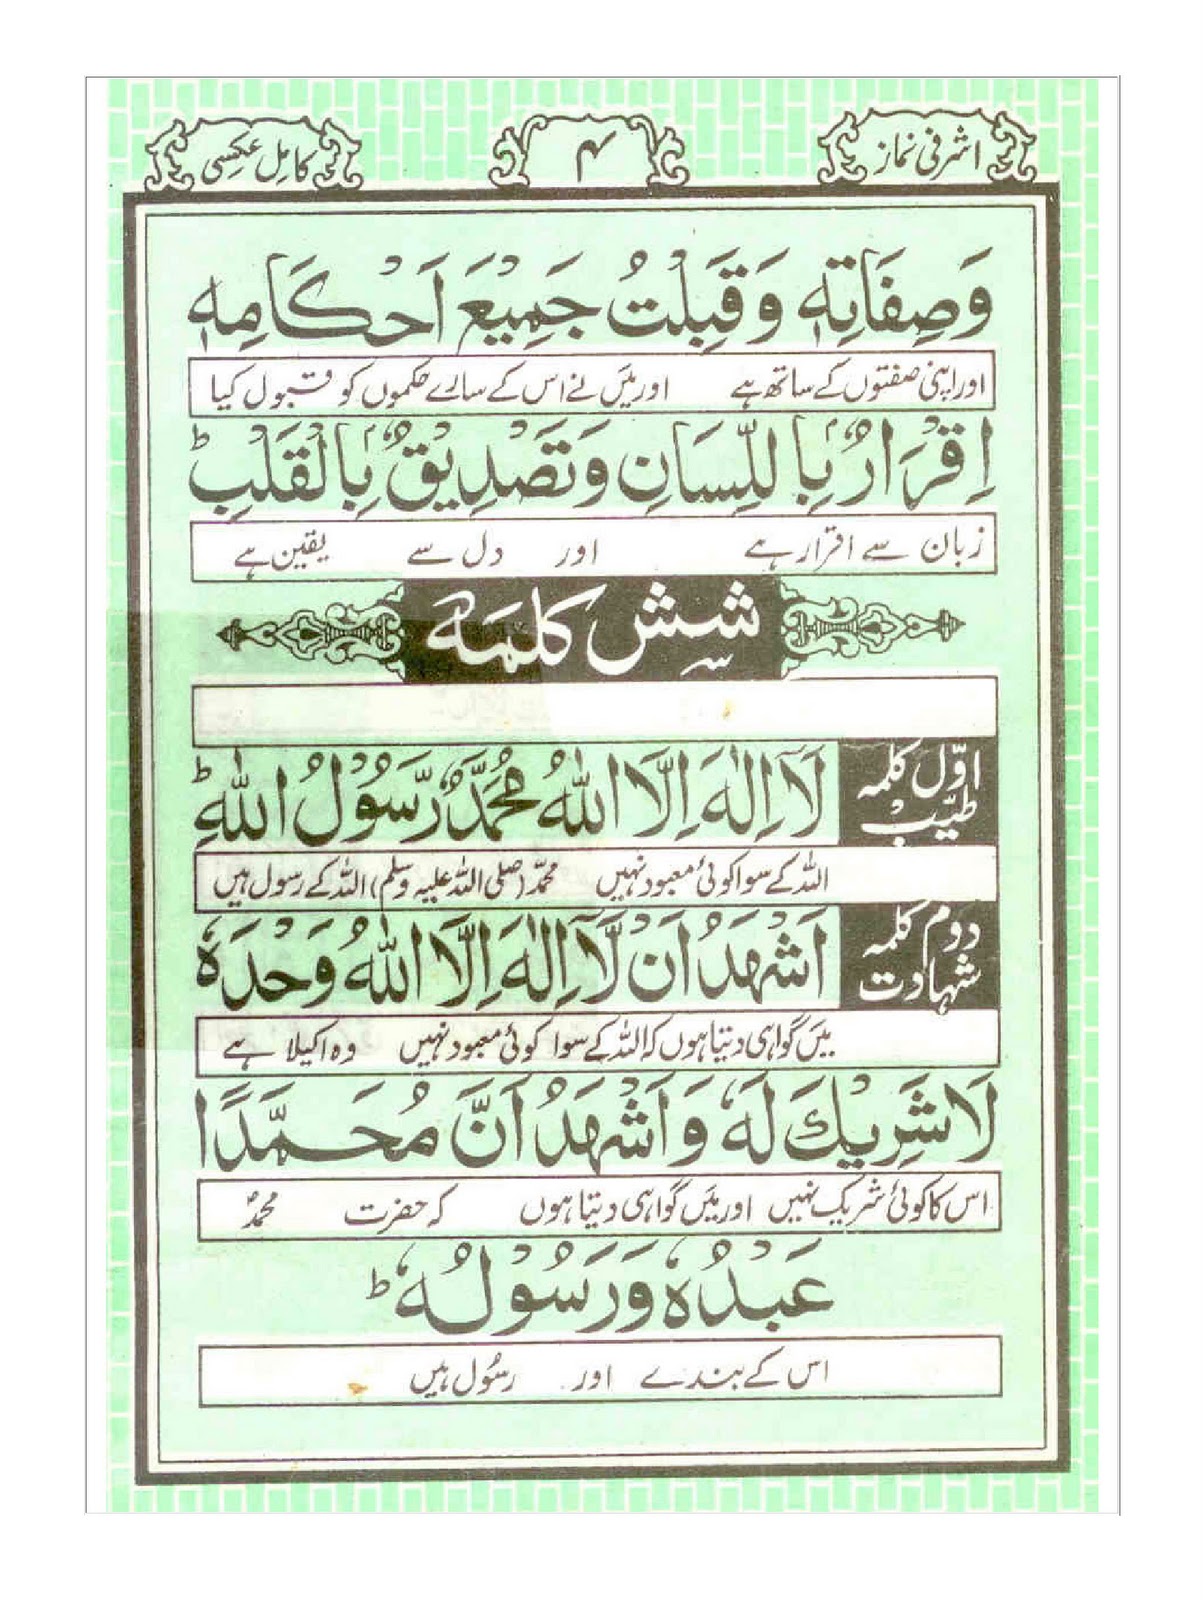 اشرفی نماز
۴
کامل عکسی
وَصِفَاتِهٖ وَقَبِلْتُ جَمِیْعَ اَحْکَامِهٖ
اور اپنی صفتوں کے ساتھ ہے اور میں نے اس کے سارے حکموں کو قبول کیا
اِقْرَارٌۢ بِاللِّسَانِ وَتَصْدِیْقٌۢ بِالْقَلْبِ ؕ
زبان سے اقرار ہے اور دل سے یقین ہے
شش کلمہ
اوّل کلمہ طیّب
لَاۤ اِلٰهَ اِلَّا اللّٰهُ مُحَمَّدٌ رَّسُوْلُ اللّٰهِ ؕ
اللہ کے سوا کوئی معبود نہیں محمّد (صلی اللہ علیہ وسلم) اللہ کے رسول ہیں
دوم کلمہ شہادت
اَشْهَدُ اَنْ لَّاۤ اِلٰهَ اِلَّا اللّٰهُ وَحْدَهٗ
میں گواہی دیتا ہوں کہ اللہ کے سوا کوئی معبود نہیں وہ اکیلا ہے
لَا شَرِیْكَ لَهٗ وَاَشْهَدُ اَنَّ مُحَمَّدًا
اس کا کوئی شریک نہیں اور میں گواہی دیتا ہوں کہ حضرت محمدؐ
عَبْدُهٗ وَرَسُوْلُهٗ ؕ
اس کے بندے اور رسُول ہیں